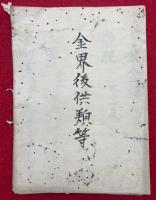 金界後供類等